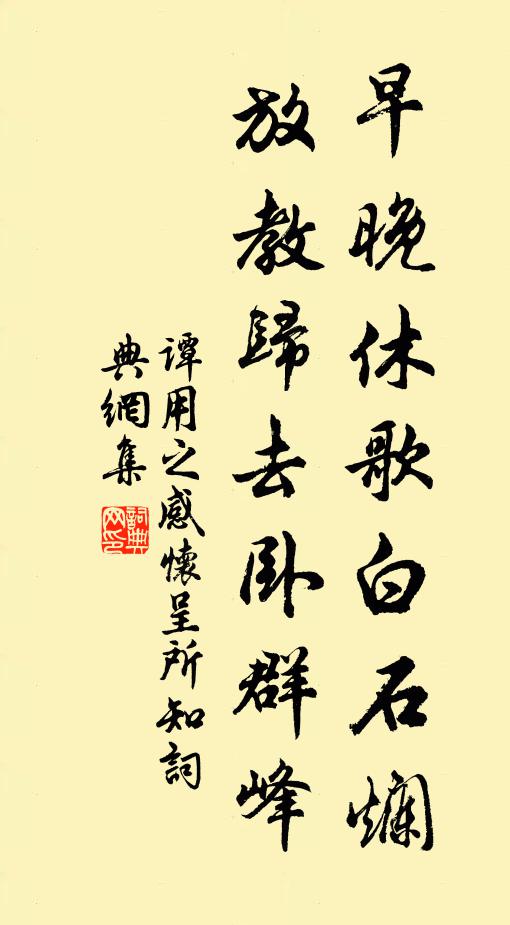 早晚休歌白石爛
放教歸去卧群峰
谭用之感懷呈所知詞
典網集
詞典网印